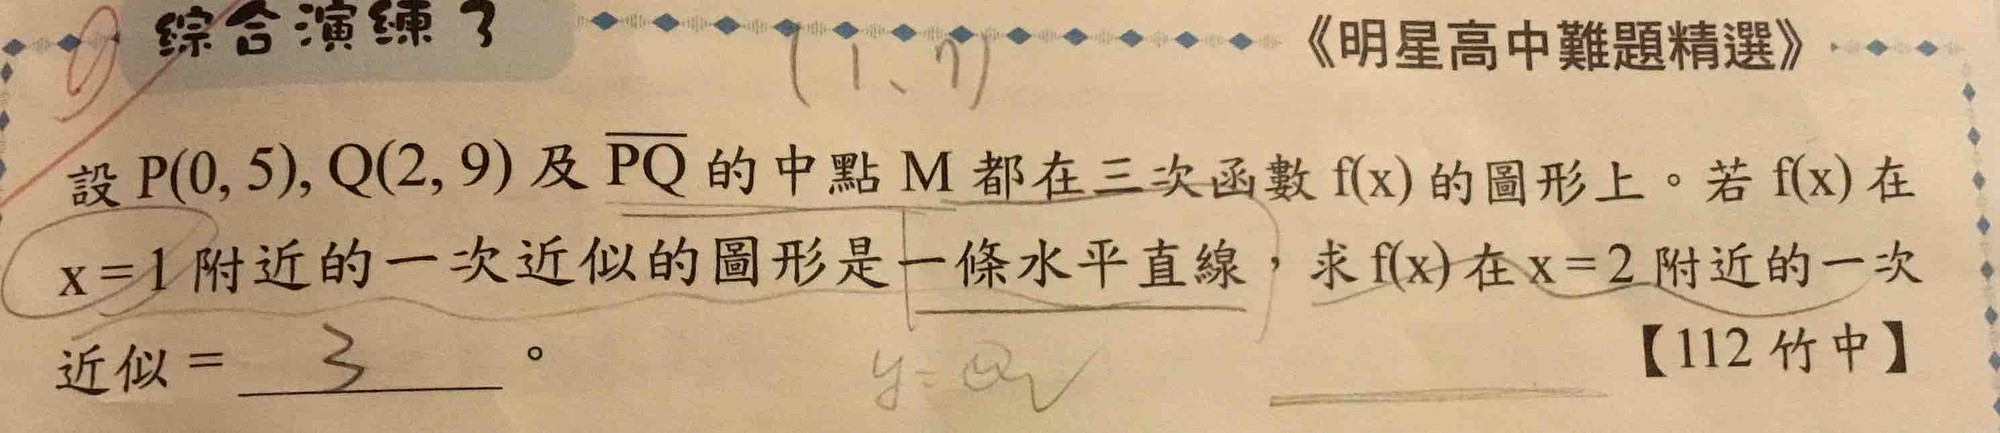 綜合演練 3
《明星高中難題精選》
(1、7)
設 P(0, 5), Q(2, 9) 及 PQ 的中點 M 都在三次函數 f(x) 的圖形上。若 f(x) 在
x = 1 附近的一次近似的圖形是一條水平直線，求 f(x) 在 x = 2 附近的一次
近似 = 3 。
【112 竹中】